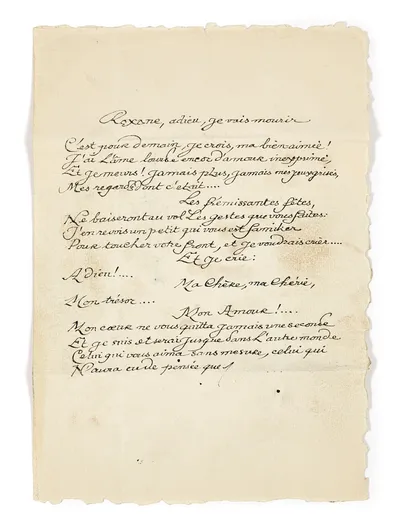 Roxane, adieu, je vais mourir
C'est pour demain, je crois, ma bien aimée!
J'ai L'âme lourde encor d'amour inexprimé,
Et je meurs! jamais plus, jamais mes yeux grisés,
Mes regards dont c'était....
Les frémissantes fêtes,
Ne baiseront au vol Les gestes que vous faites:
J'en revois un petit qui vous est familier
Pour toucher votre front, et je voudrais crier.....
Et je crie:
Adieu!....
Ma Chère, ma Chérie,
Mon trésor....
Mon Amour!....
Mon cœur ne vous quitta jamais une seconde
Et je suis et serai jusque dans L'autre monde
Celui qui vous aima sans mesure, celui qui
N'aura eu de pensée que